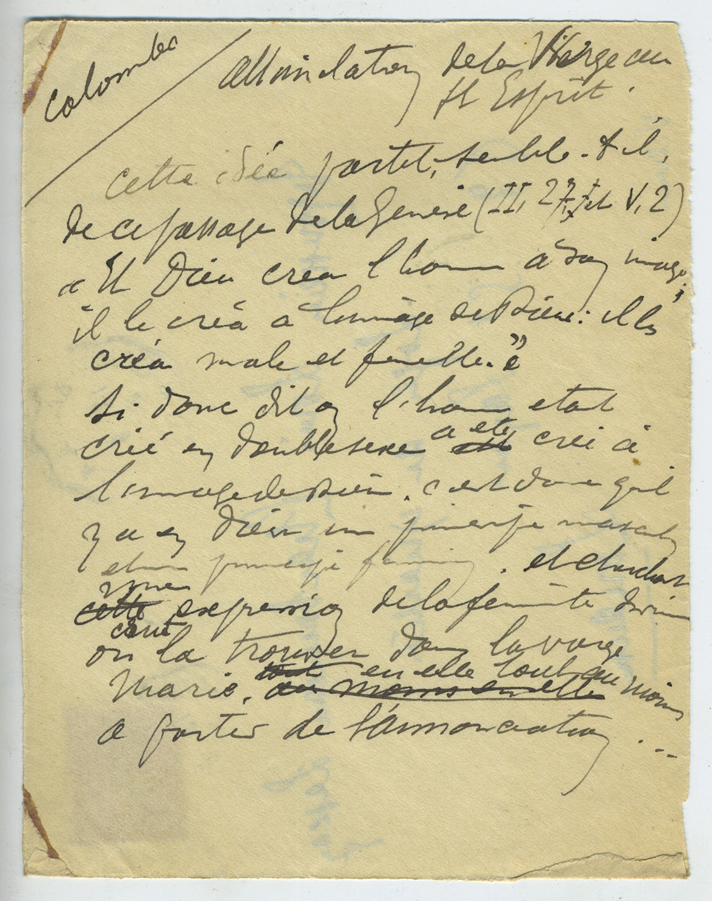 colombe
assimilation de la Vierge au
St Esprit.
cette idée partit, semble-t-il,
de ce passage de la Genèse (II, 27, et V, 2)
« Et Dieu créa l'homme à son image;
il le créa à l'image de Dieu: il les
créa male et femelle. »
Si donc dit on l'homme etat
créé en double sexe a eté créé à
l'image de Dieu. c'est donc qu'il
y a en Dieu un principe masculin
et un principe feminin. et cherchant
une
expression de la feminité divine
on crut la trouver dans la vierge
Marie, en elle tout au moins
a partir de l'annonciation ...